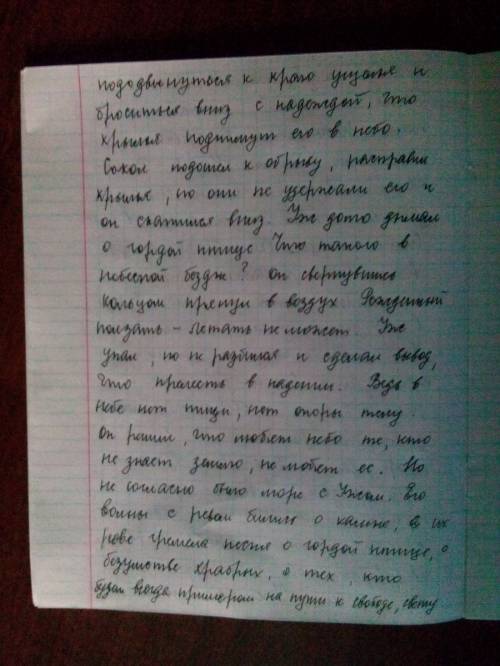 пододвинуться к краю ущелья и
броситься вниз с надеждой, что
крылья поднимут его в небо.
Сокол подошел к обрыву, расправил
крылья, но они не удержали его и
он скатился вниз. Уж долго думал
о гордой птице Что такого в
небесной бездне? он свернувшись
кольцом прянул в воздух Рожденный
ползать - летать не может. Уж
упал, но не разбился и сделал вывод,
что прелесть в падении. Ведь в
небе нет пищи, нет опоры телу.
Он решил, что любят небо те, кто
не знает землю, не любят ее. Но
не согласно было море с Ужом. Его
волны с ревом бились о камне, в их
реве гремела песня о гордой птице, о
безумстве храбрых, о тех, кто
будет всегда примером на пути к свободе, свету